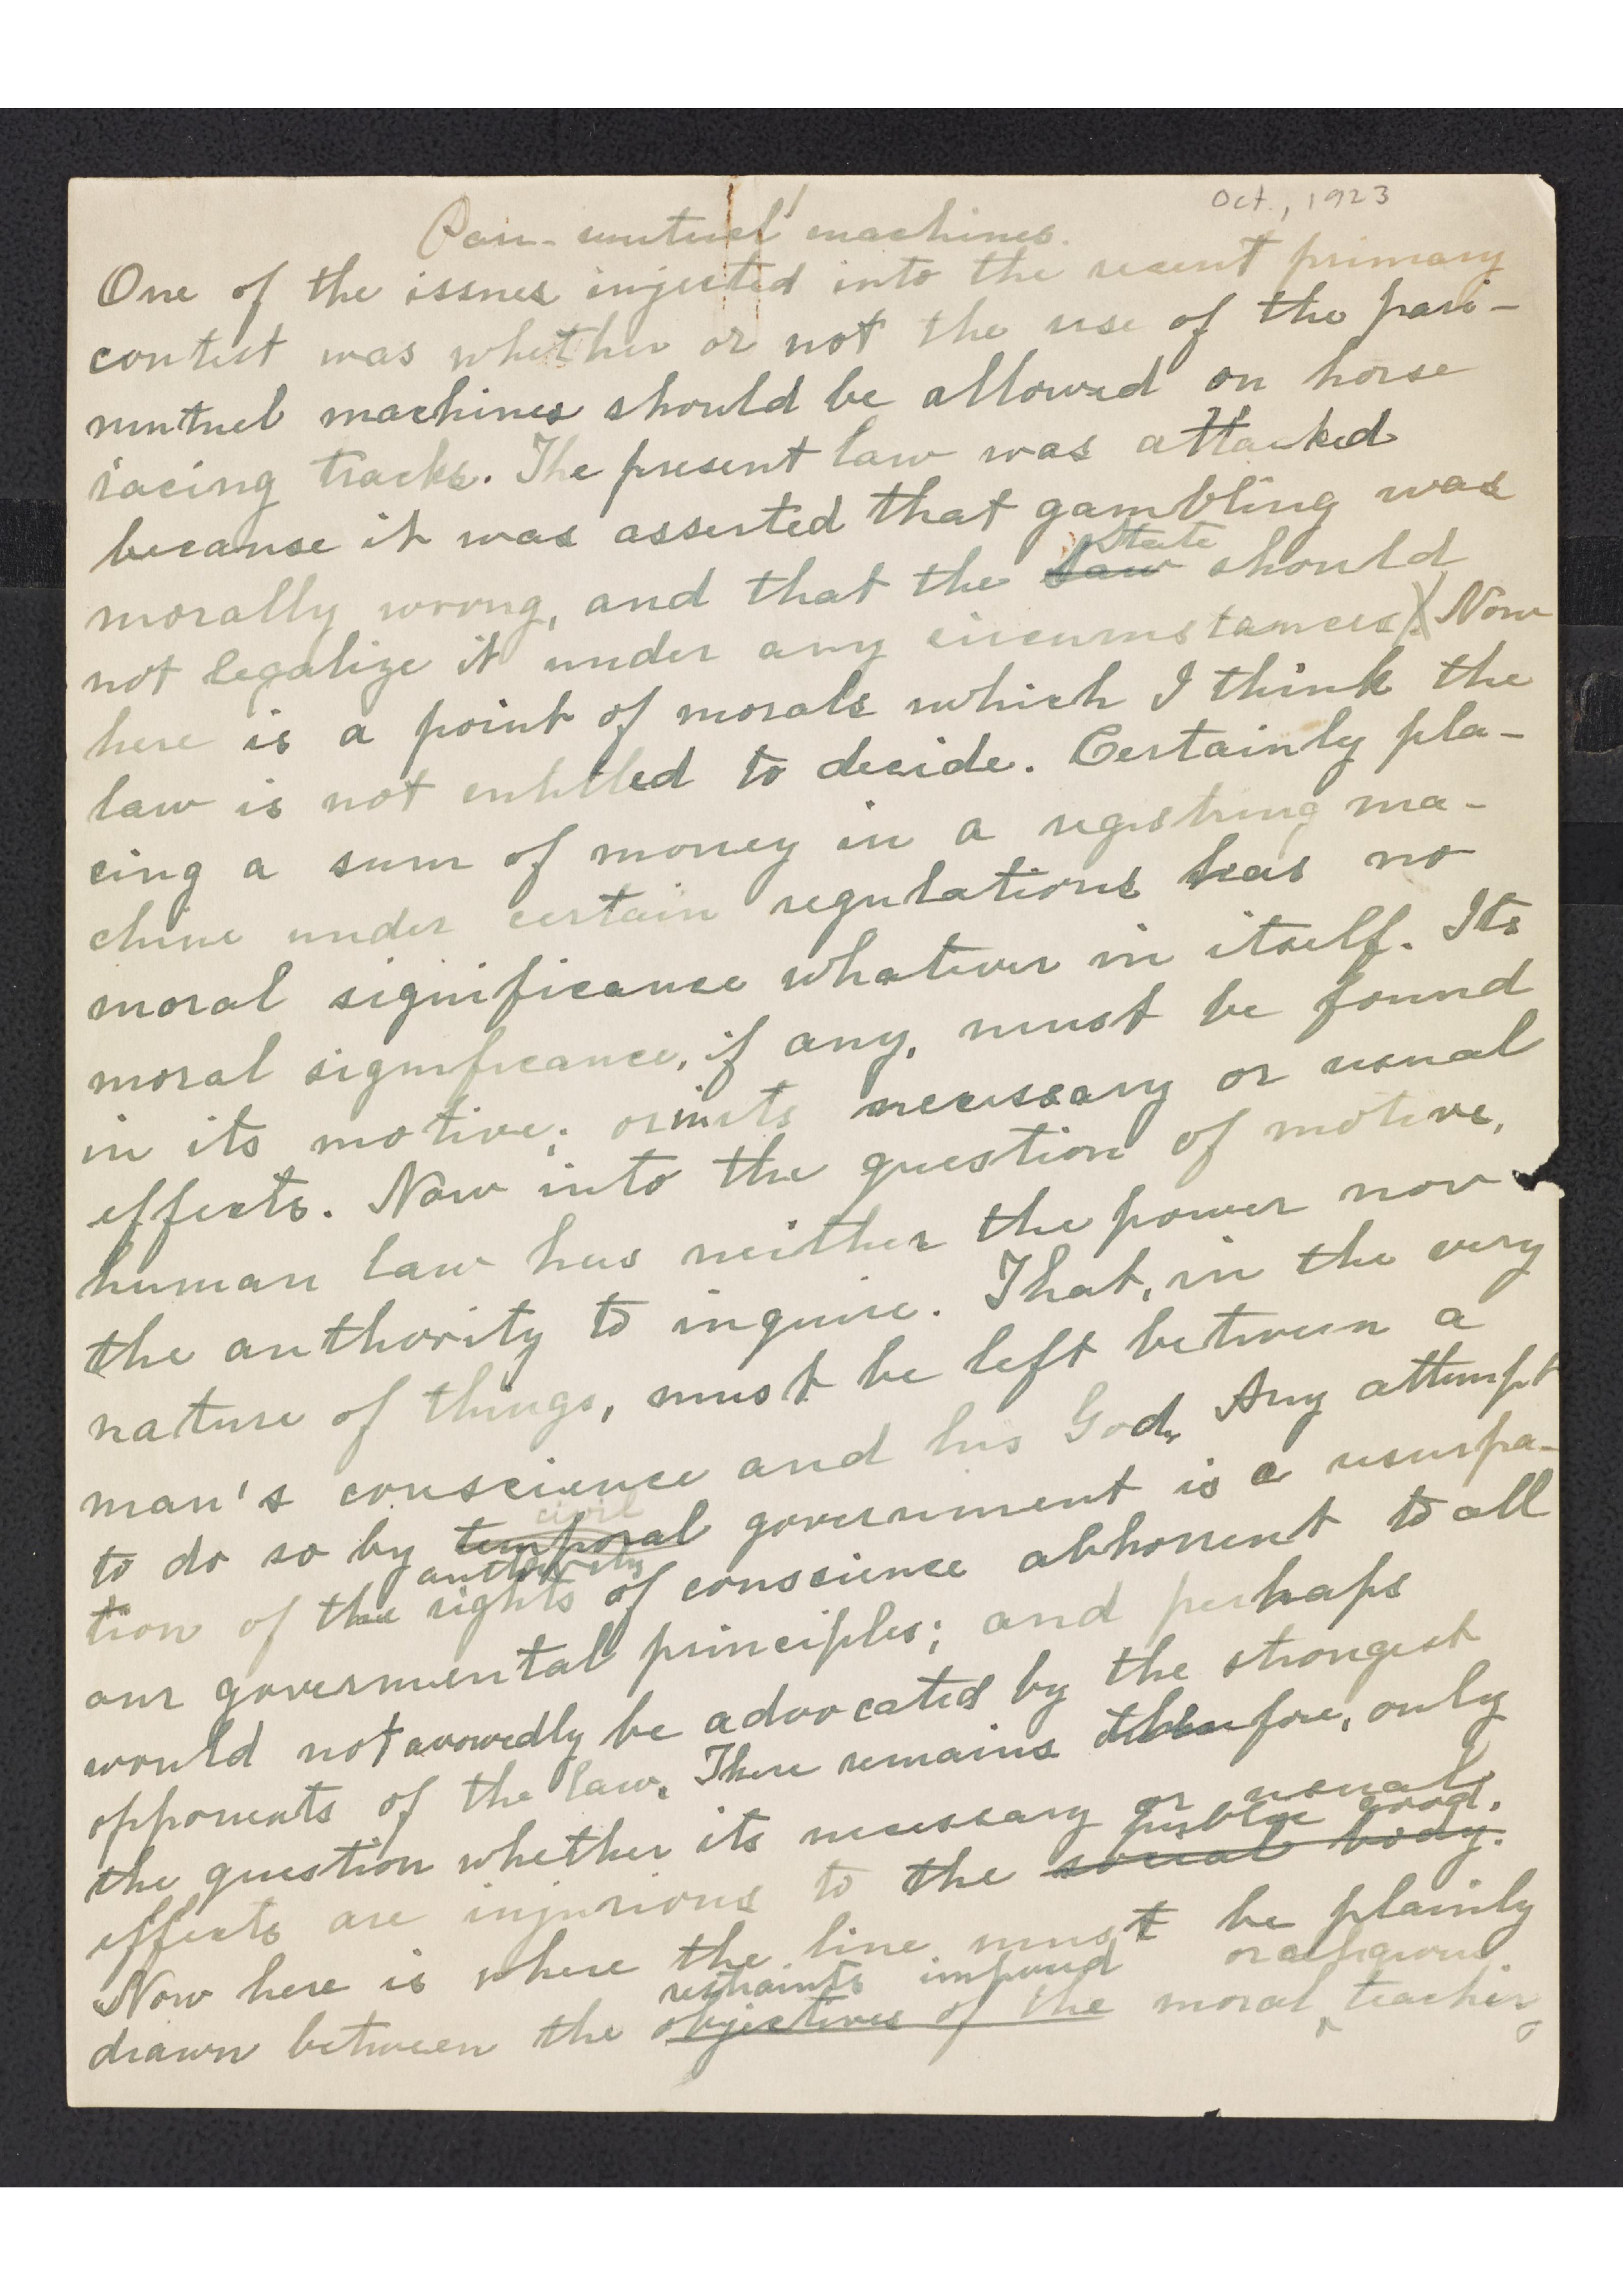 Oct., 1923
Pari-mutuel machines.
One of the issues injected into the recent primary
contest was whether or not the use of the pari-
mutuel machines should be allowed on horse
racing tracks. The present law was attacked
because it was asserted that gambling was
State
morally wrong, and that the law should
not legalize it under any circumstances. Now
here is a point of morals which I think the
law is not entitled to decide. Certainly pla-
cing a sum of money in a registring ma-
chine under certain regulations has no
moral significance whatever in itself. Its
moral significance, if any, must be found
in its motive; or in its necessary or usual
effects. Now into the question of motive,
human law has neither the power nor
the authority to inquire. That, in the very
nature of things, must be left between a
man's conscience and his God. Any attempt
civil
to do so by temporal government is a usurpa-
authority
tion of the rights of conscience abhorrent to all
our governmental principles; and perhaps
would not avowedly be advocated by the strongest
opponents of the law. There remains therefore, only
the question whether its necessary or usual
public good.
effects are injurious to the social body.
Now here is where the line must be plainly
restraints imposed or religious
drawn between the objectives of the moral teacher